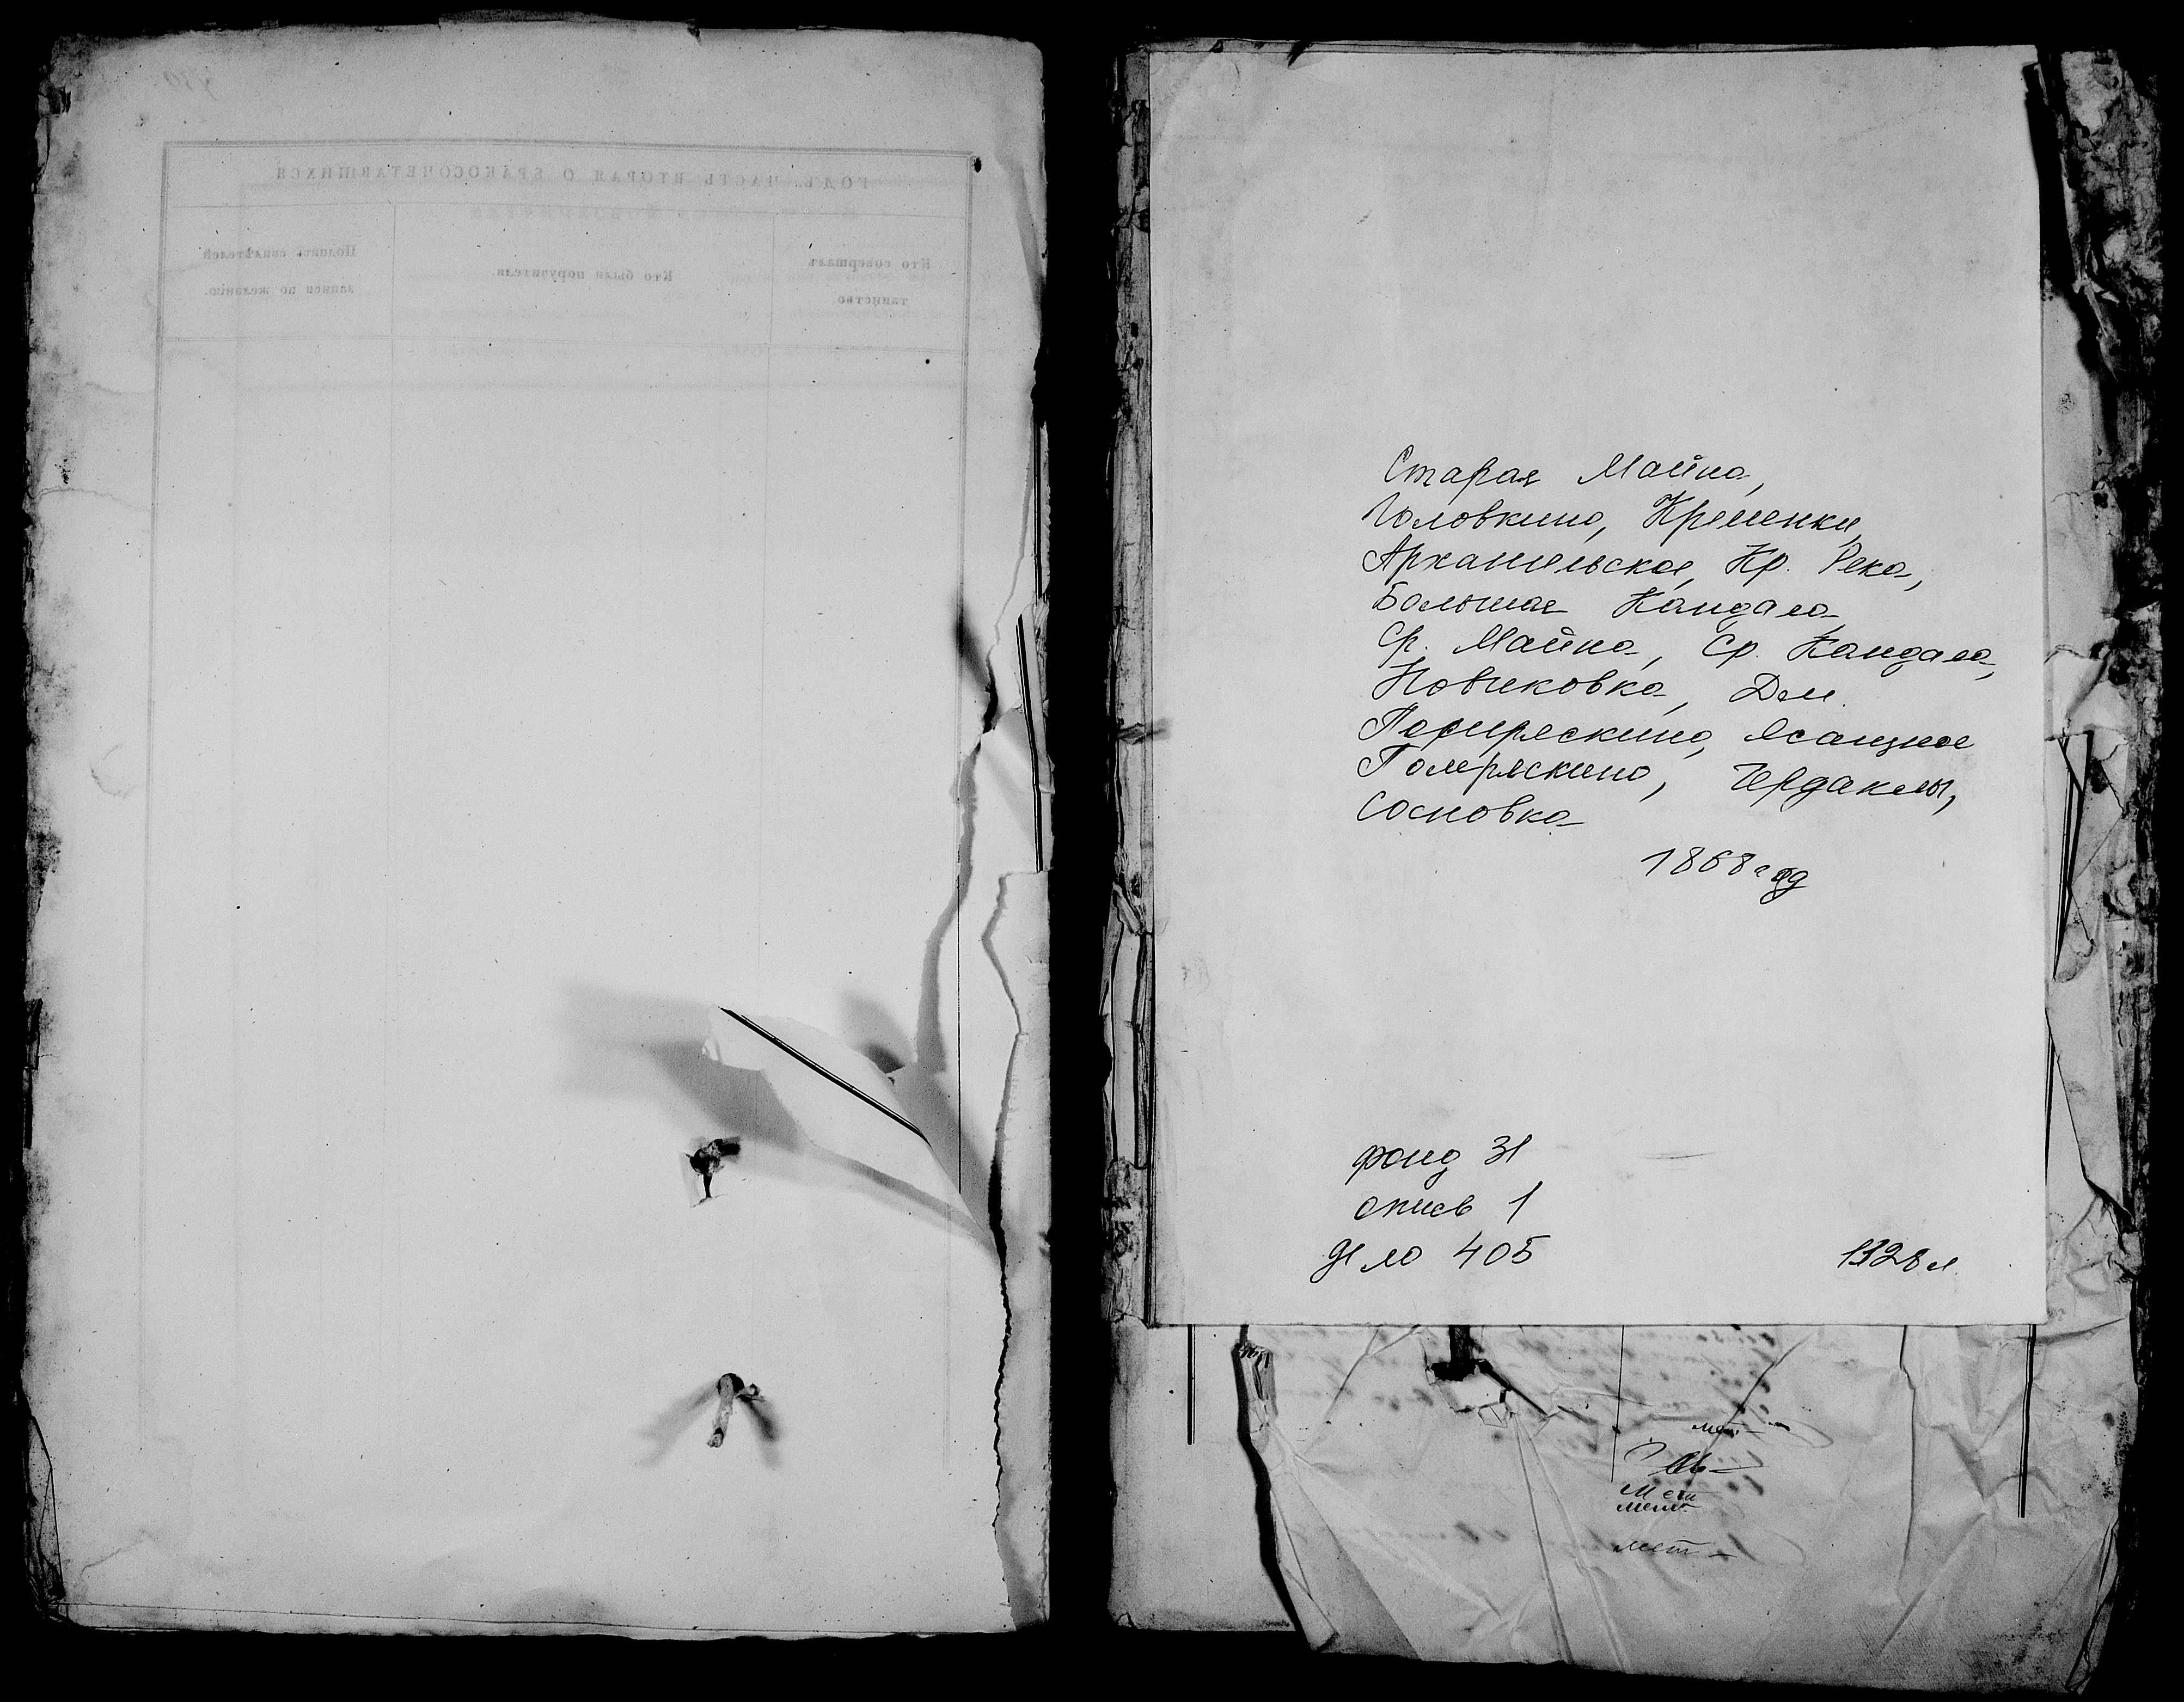 ГОДЪ. ЧАСТЬ ВТОРАЯ О БРАКОСОЧЕТАВШИХСЯ
Кто совершалъ таинство.
Кто были поручители.
Подпись свидѣтелей записи по желанію.
Старая Майна,
Головкино, Кременки,
Архангельское, Кр. Река,
Большая Кандала,
Ср. Майна, Ср. Кандала,
Новиковка, Дем.
Помряскино, Ясашное
Помряскино, Чердаклы,
Сосновка
1868 год
фонд 31
опись 1
дело 405
1328 л
мет
мет